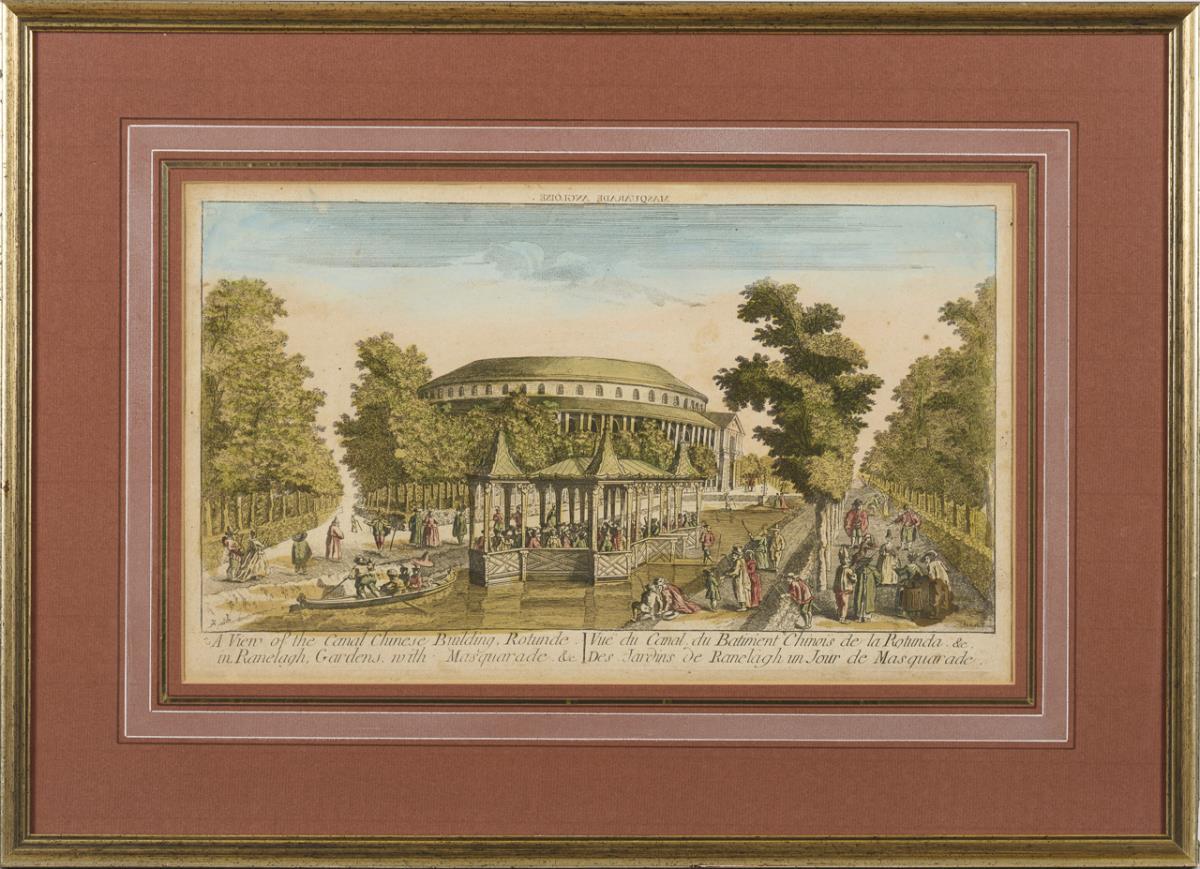 MASQUARADE ANGLOISE.
A View of the Canal Chinese Building, Rotunde.
in Ranelagh, Gardens, with Masquarade &c.
Vue du Canal, du Batiment Chinois de la Rotunda. &c.
Des Jardins de Ranelagh un Jour de Masquarade.